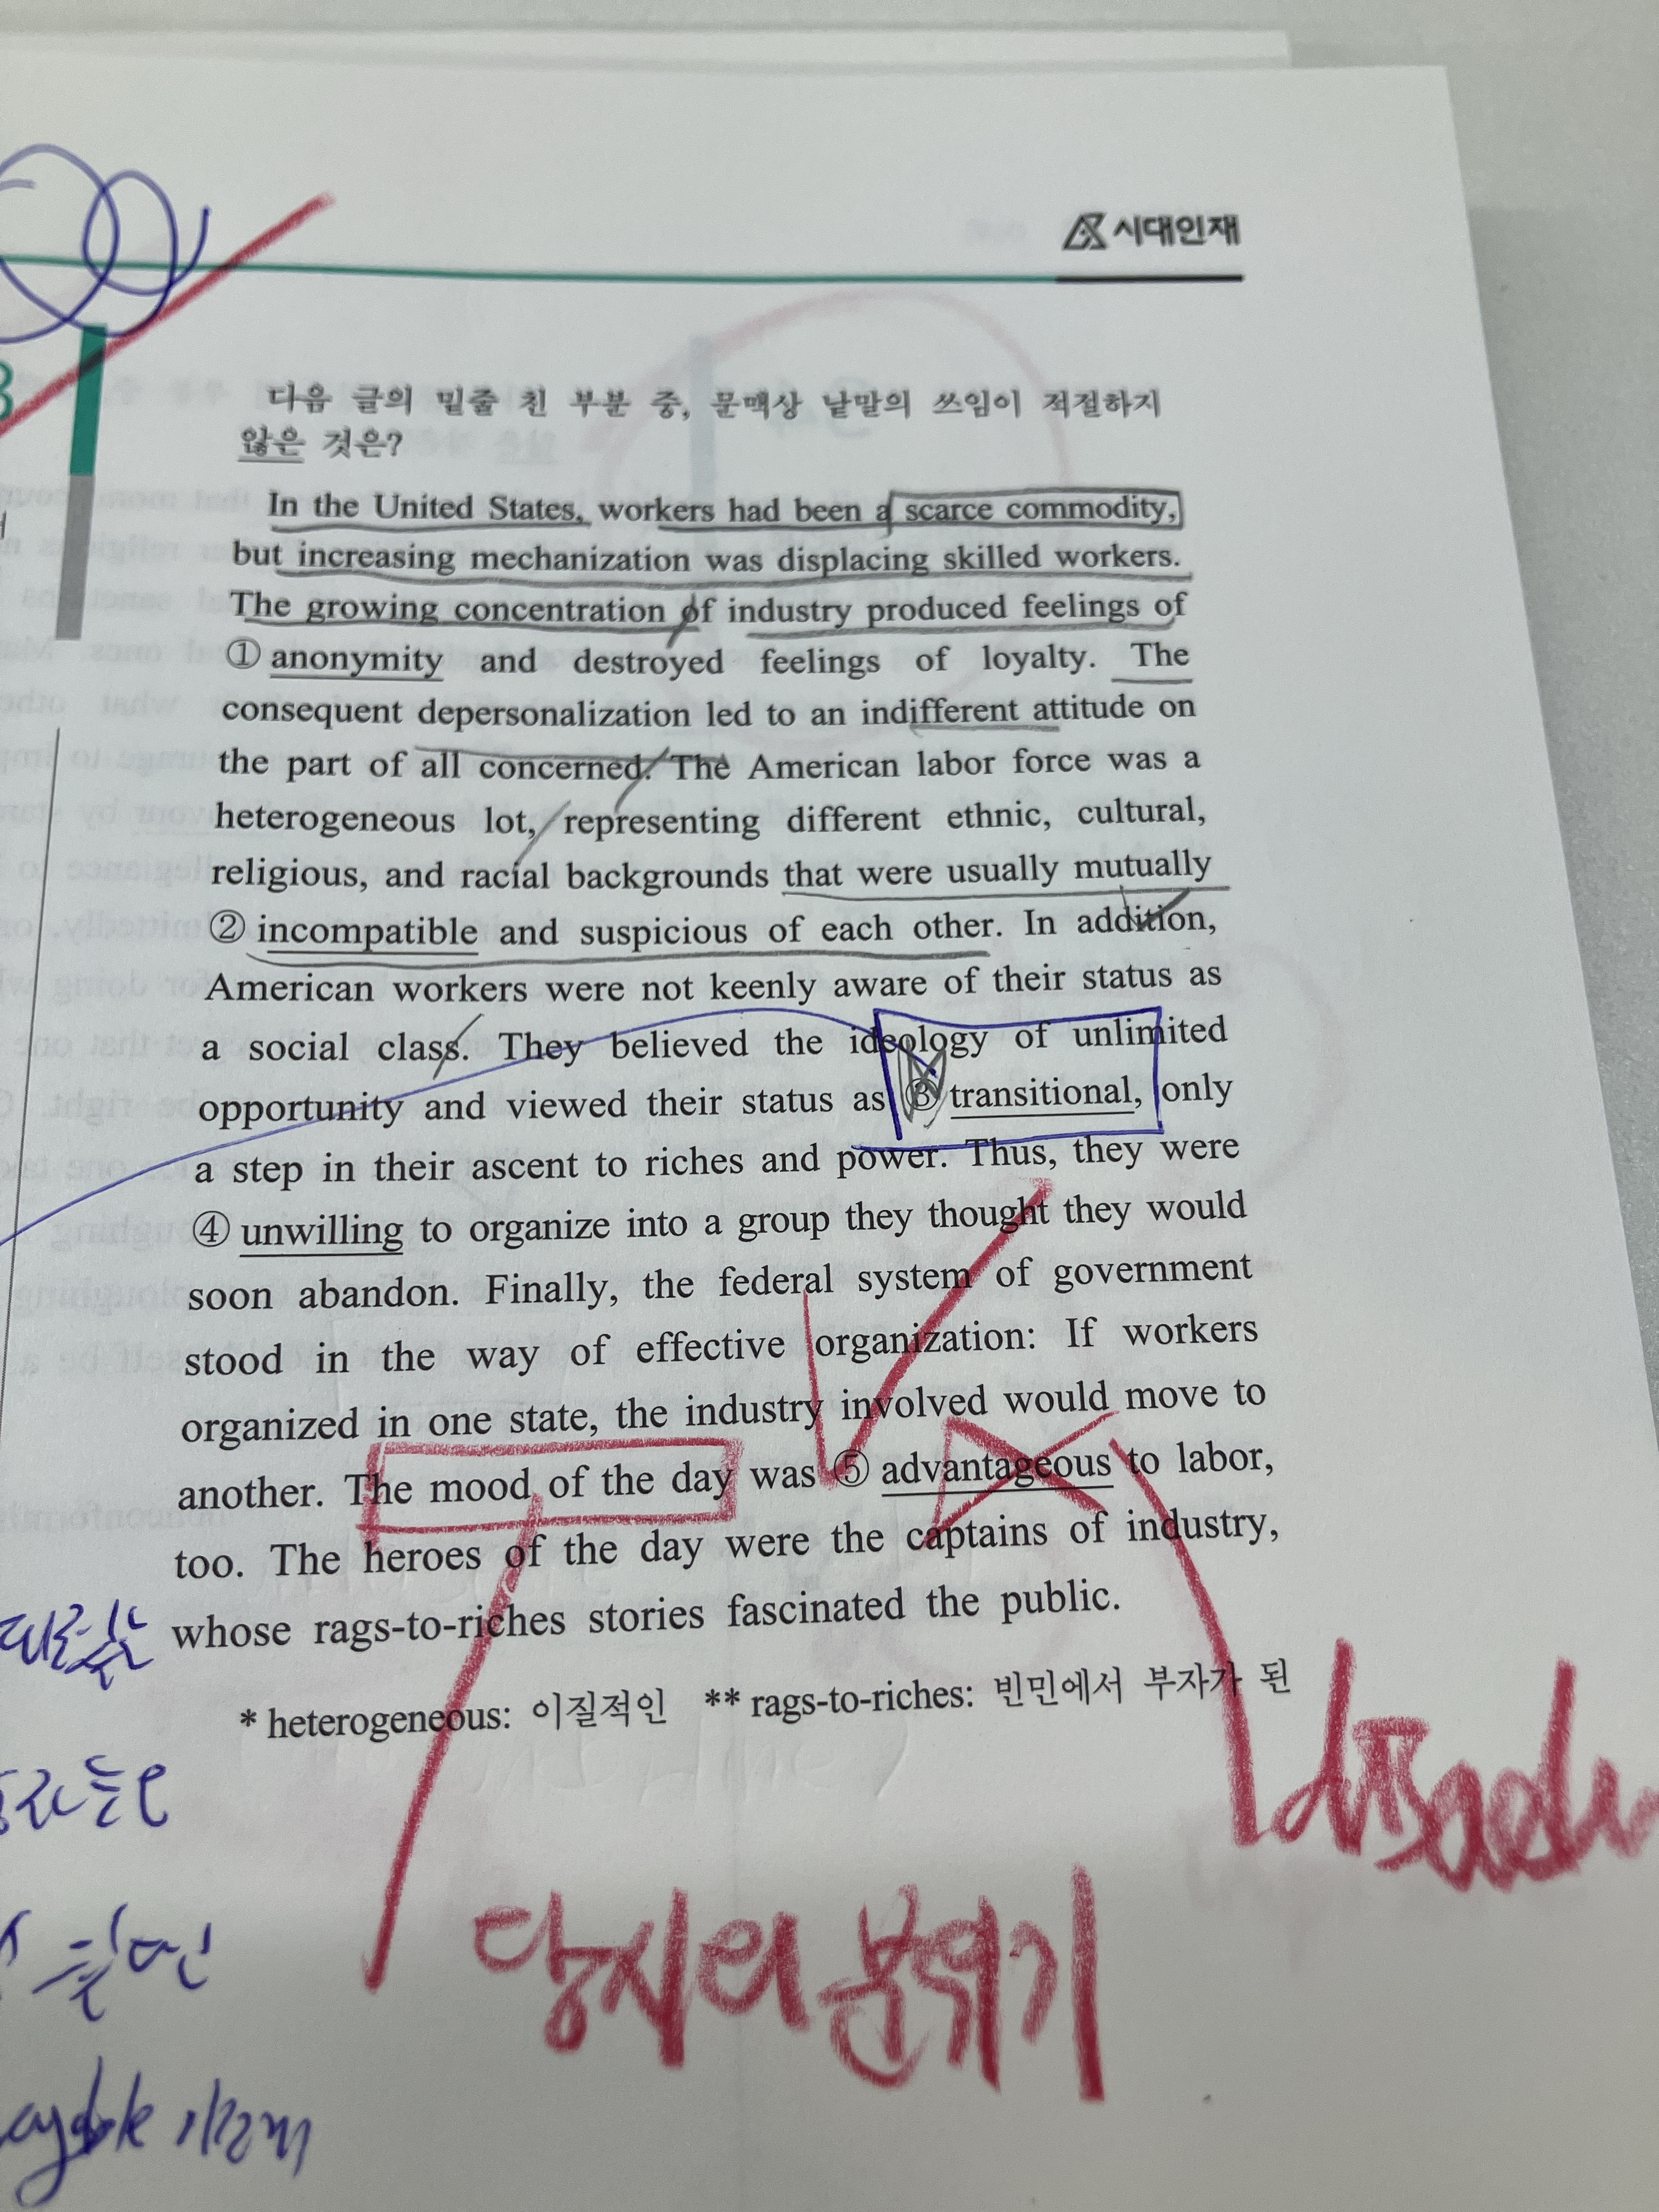 시대인재
다음 글의 밑줄 친 부분 중, 문맥상 낱말의 쓰임이 적절하지
않은 것은?
In the United States, workers had been a scarce commodity,
but increasing mechanization was displacing skilled workers.
The growing concentration of industry produced feelings of
① anonymity and destroyed feelings of loyalty. The
consequent depersonalization led to an indifferent attitude on
the part of all concerned. The American labor force was a
heterogeneous lot, representing different ethnic, cultural,
religious, and racial backgrounds that were usually mutually
② incompatible and suspicious of each other. In addition,
American workers were not keenly aware of their status as
a social class. They believed the ideology of unlimited
opportunity and viewed their status as ③ transitional, only
a step in their ascent to riches and power. Thus, they were
④ unwilling to organize into a group they thought they would
soon abandon. Finally, the federal system of government
stood in the way of effective organization: If workers
organized in one state, the industry involved would move to
another. The mood of the day was ⑤ advantageous to labor,
too. The heroes of the day were the captains of industry,
whose rags-to-riches stories fascinated the public.
* heterogeneous: 이질적인 ** rags-to-riches: 빈민에서 부자가 된
당시의 분위기